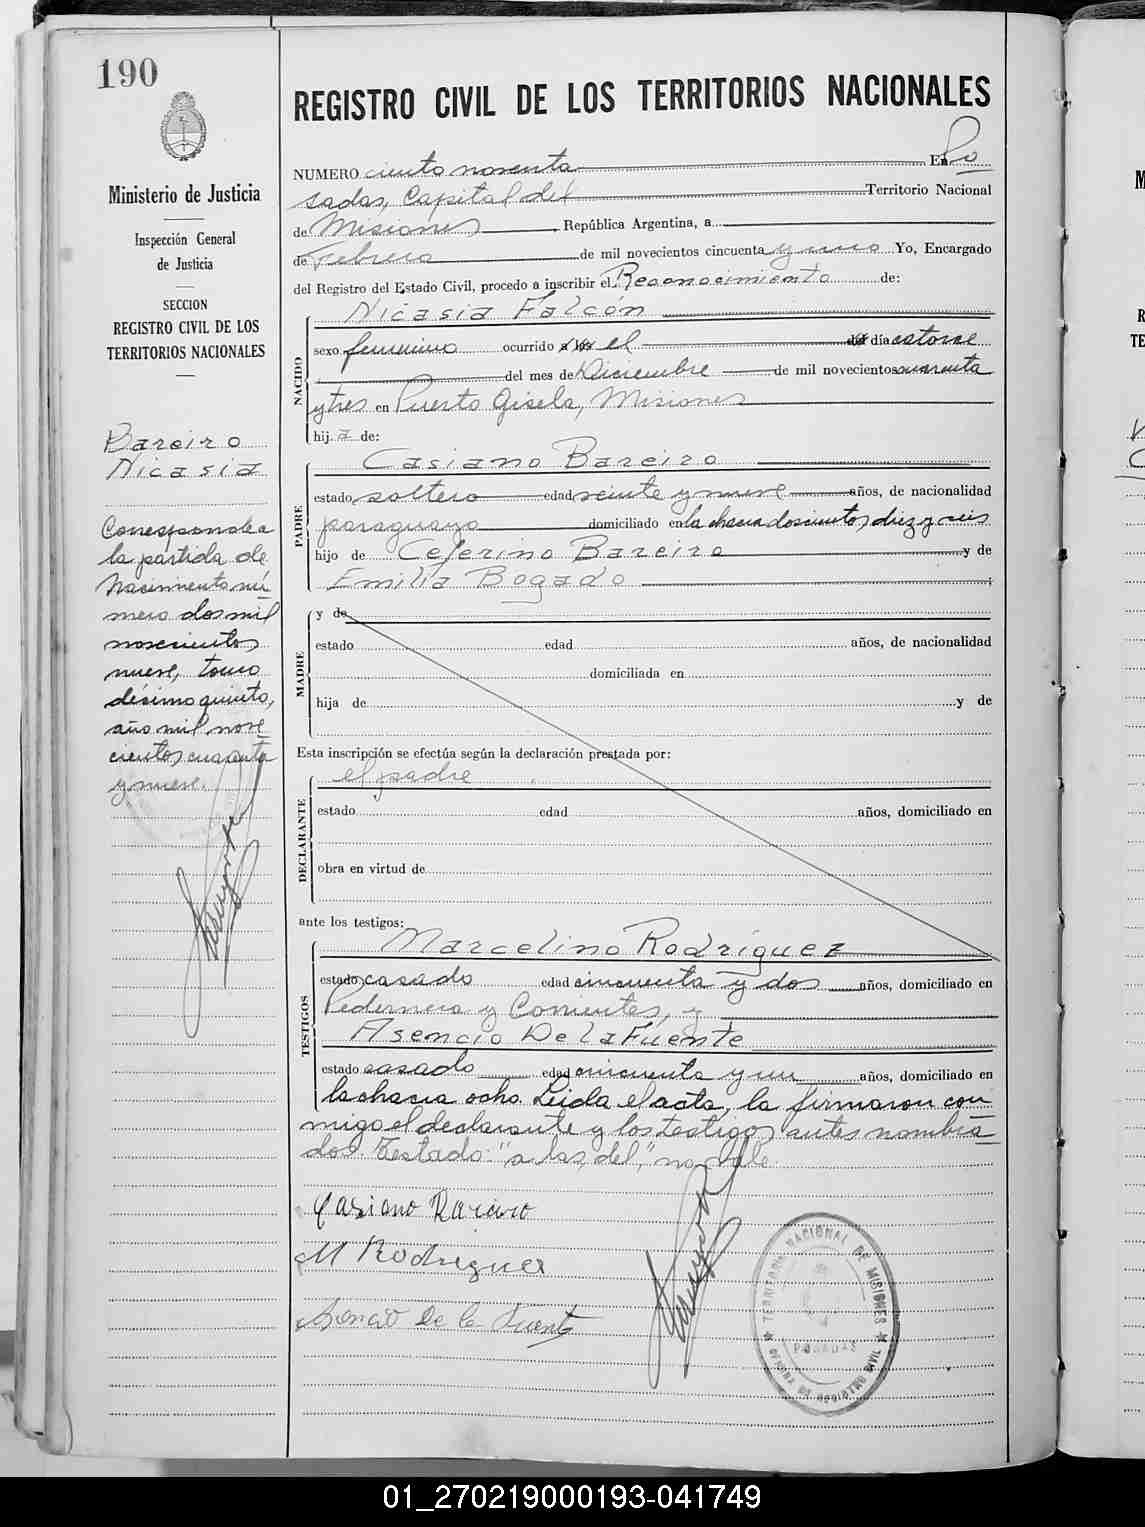 190
REGISTRO CIVIL DE LOS TERRITORIOS NACIONALES
Ministerio de Justicia
Inspección General
de Justicia
SECCION
REGISTRO CIVIL DE LOS
TERRITORIOS NACIONALES
Bareiro
Nicasia
Corresponde a
la partida de
Nacimiento nú
mero dos mil
novecientos
nueve, tomo
décimo quinto,
año mil nove
cientos cuarenta
y nueve.
NUMERO ciento noventa En Po
sadas, Capital del Territorio Nacional
de Misiones, República Argentina, a
de Febrero de mil novecientos cincuenta y uno Yo, Encargado
del Registro del Estado Civil, procedo a inscribir el Reconocimiento de:
NACIDO
Nicasia Falcón
sexo femenino ocurrido a las el del día catorce
del mes de Diciembre de mil novecientos cuarenta
y tres en Puerto Gisela, Misiones
hij a de:
PADRE
Casiano Bareiro
estado soltero edad veinte y nueve años, de nacionalidad
paraguayo domiciliado en la chacra doscientos diez y seis
hijo de Ceferino Bareiro y de
Emilia Bogado
MADRE
y de
estado edad años, de nacionalidad
domiciliada en
hija de y de
Esta inscripción se efectúa según la declaración prestada por:
DECLARANTE
el padre
estado edad años, domiciliado en
obra en virtud de
ante los testigos:
TESTIGOS
Marcelino Rodríguez
estado casado edad cincuenta y dos años, domiciliado en
Pedernera y Corrientes, y
Asencio De la Fuente
estado casado edad cincuenta y un años, domiciliado en
la chacra ocho. Leida el acta, la firmaron con
migo el declarante y los testigos antes nombra
dos. Testado: "a las, del", no vale.
Casiano Bareiro
M Rodriguez
Asencio De la Fuente
TERRITORIO NACIONAL DE MISIONES
POSADAS
OFICINA DE REGISTRO CIVIL
01_270219000193-041749